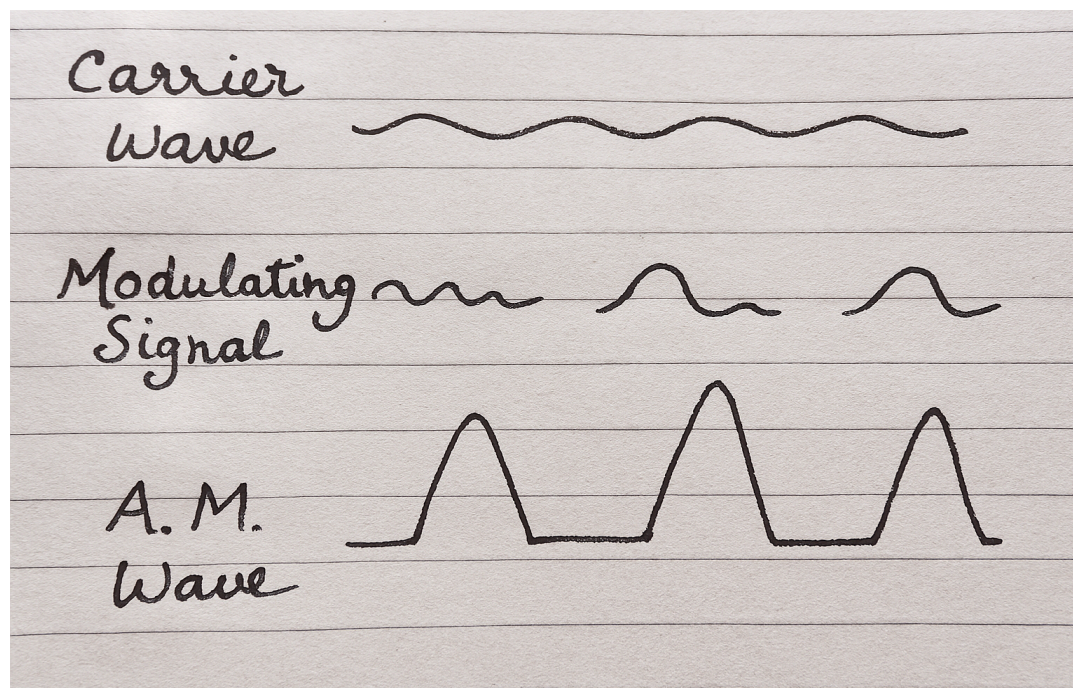 Carrier
Wave
Modulating
Signal
A. M.
Wave